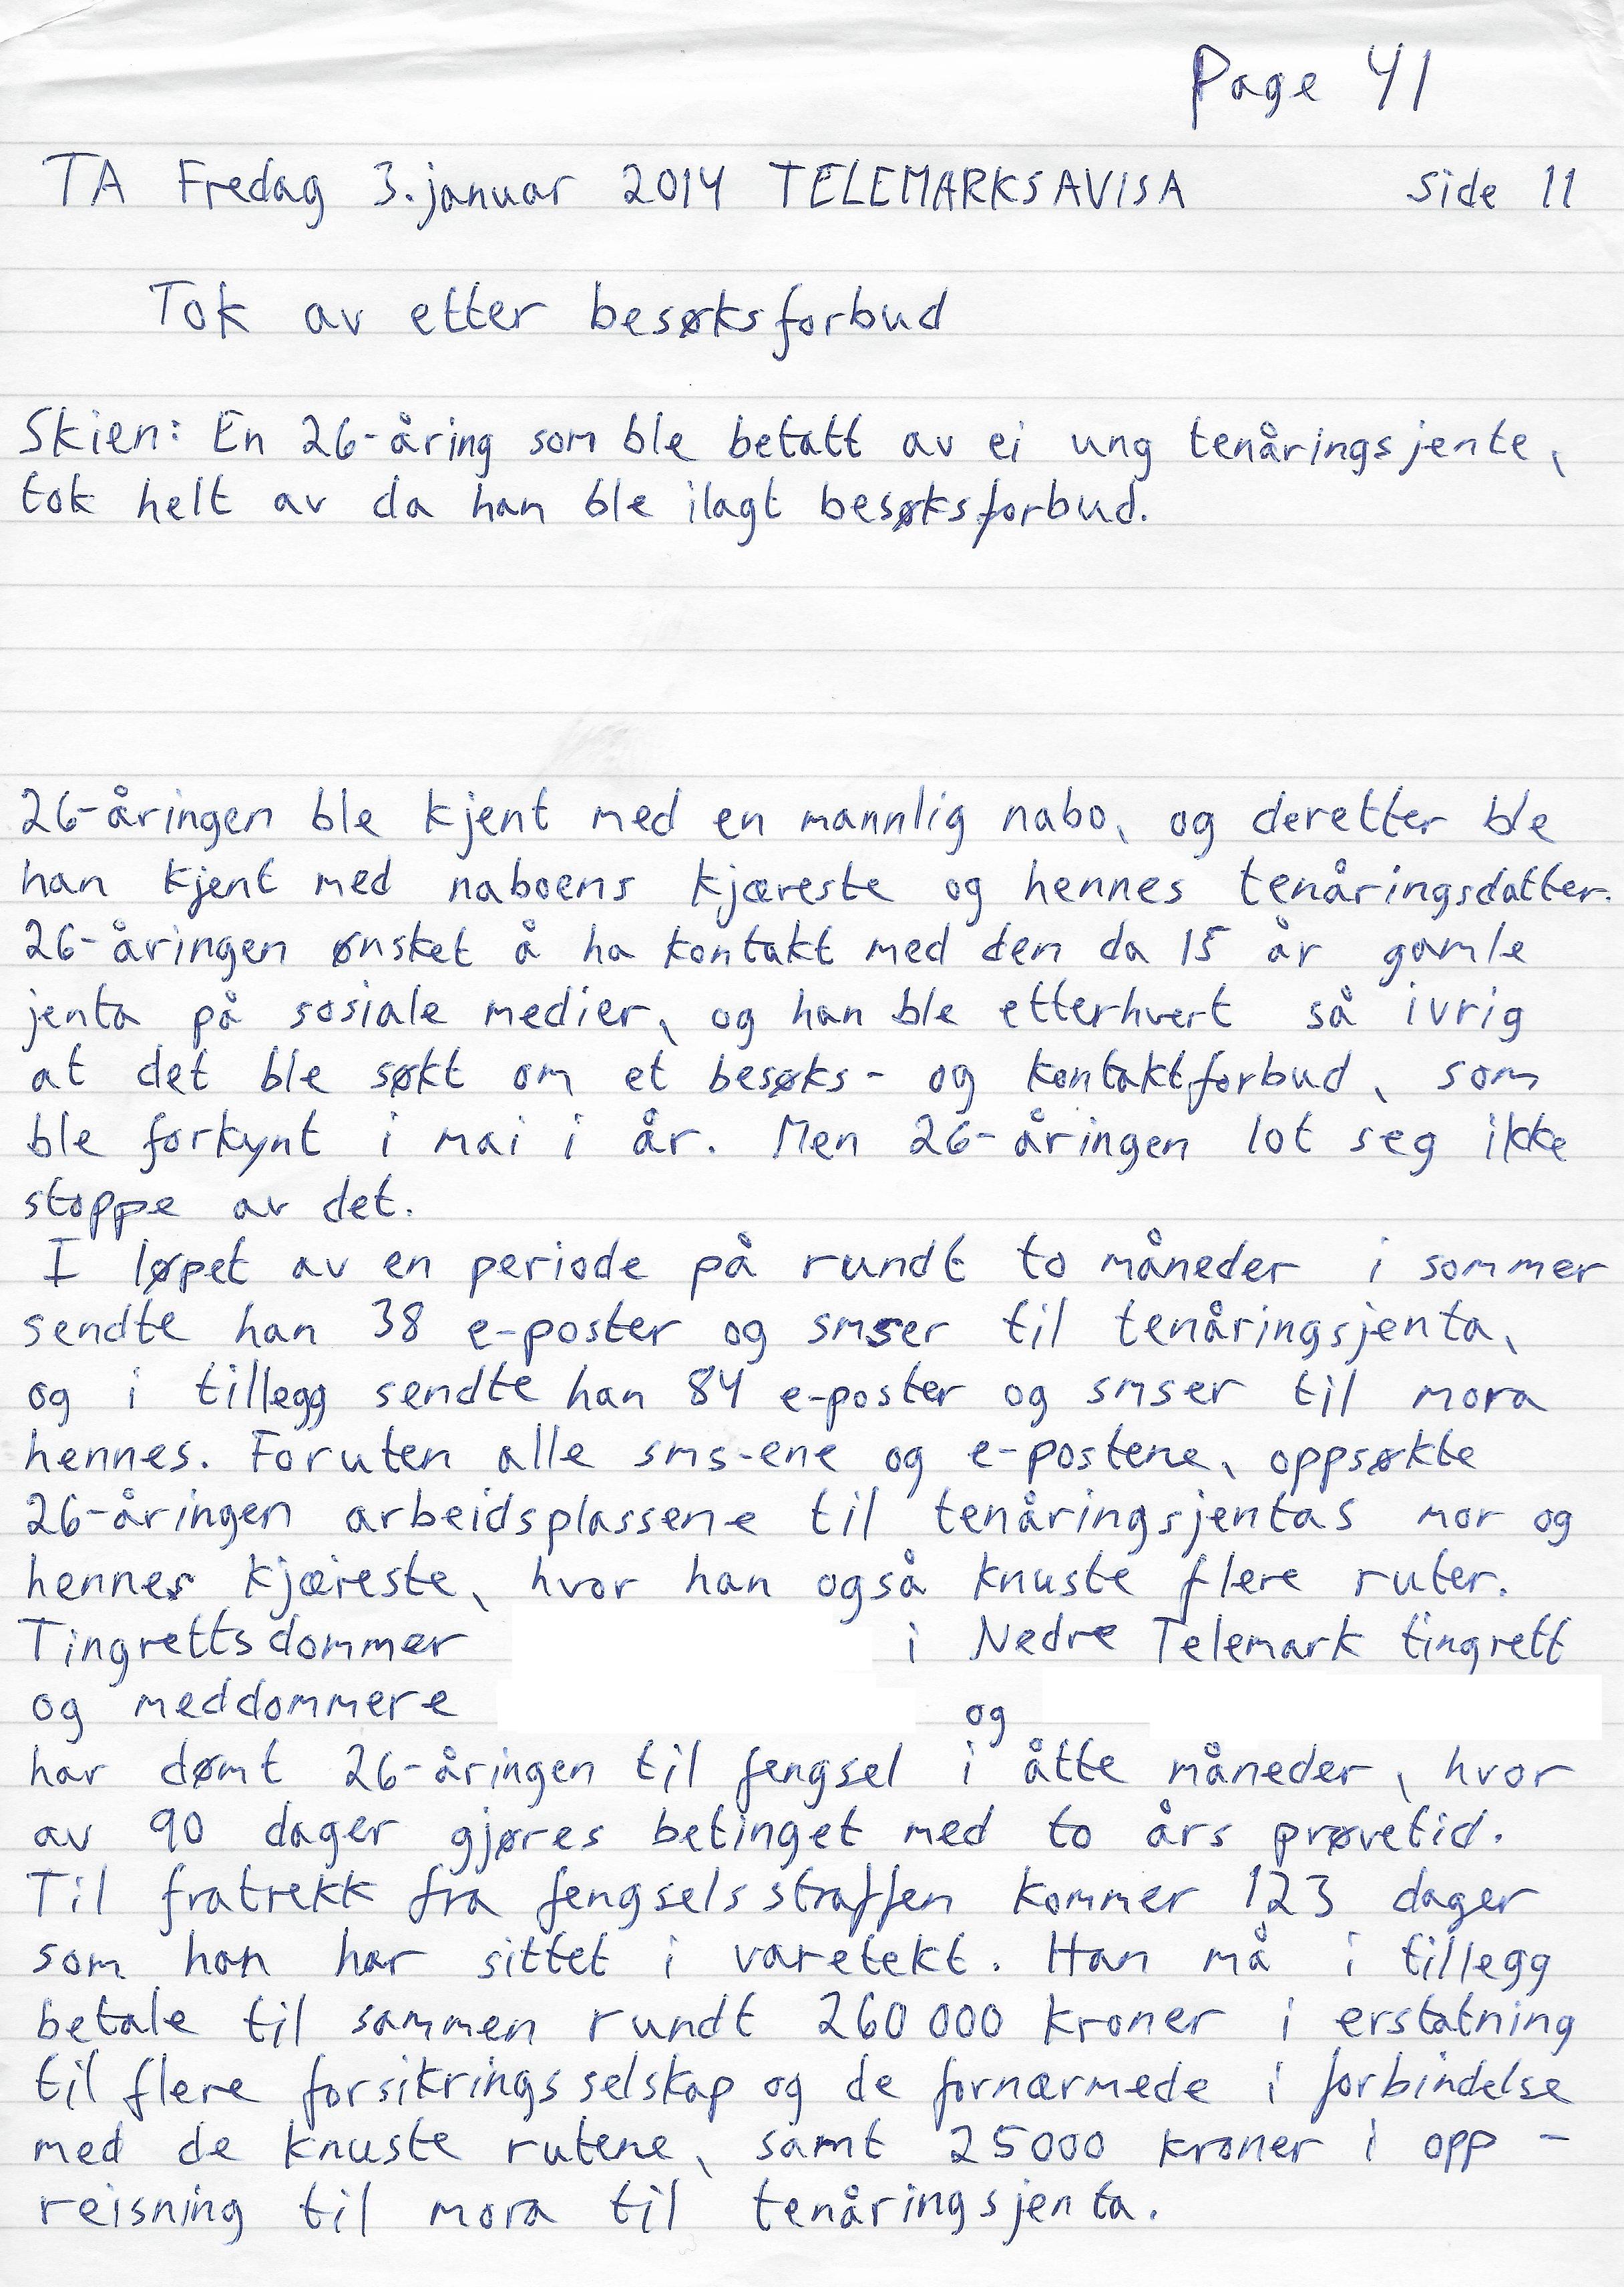 Page 41
TA Fredag 3. januar 2014 TELEMARKSAVISA side 11
Tok av etter besøksforbud
Skien: En 26-åring som ble betatt av ei ung tenåringsjente,
tok helt av da han ble ilagt besøksforbud.
26-åringen ble kjent med en mannlig nabo, og deretter ble
han kjent med naboens kjæreste og hennes tenåringsdatter.
26-åringen ønsket å ha kontakt med den da 15 år gamle
jenta på sosiale medier, og han ble etterhvert så ivrig
at det ble søkt om et besøks- og kontaktforbud, som
ble forkynt i mai i år. Men 26-åringen lot seg ikke
stoppe av det.
I løpet av en periode på rundt to måneder i sommer
sendte han 38 e-poster og smser til tenåringsjenta,
og i tillegg sendte han 84 e-poster og smser til mora
hennes. Foruten alle sms-ene og e-postene, oppsøkte
26-åringen arbeidsplassene til tenåringsjentas mor og
hennes kjæreste, hvor han også knuste flere ruter.
Tingrettsdommer i Nedre Telemark tingrett
og meddommere og
har dømt 26-åringen til fengsel i åtte måneder, hvor
av 90 dager gjøres betinget med to års prøvetid.
Til fratrekk fra fengselsstraffen kommer 123 dager
som han har sittet i varetekt. Han må i tillegg
betale til sammen rundt 260 000 kroner i erstatning
til flere forsikringsselskap og de fornærmede i forbindelse
med de knuste rutene, samt 25000 kroner i opp-
reisning til mora til tenåringsjenta.